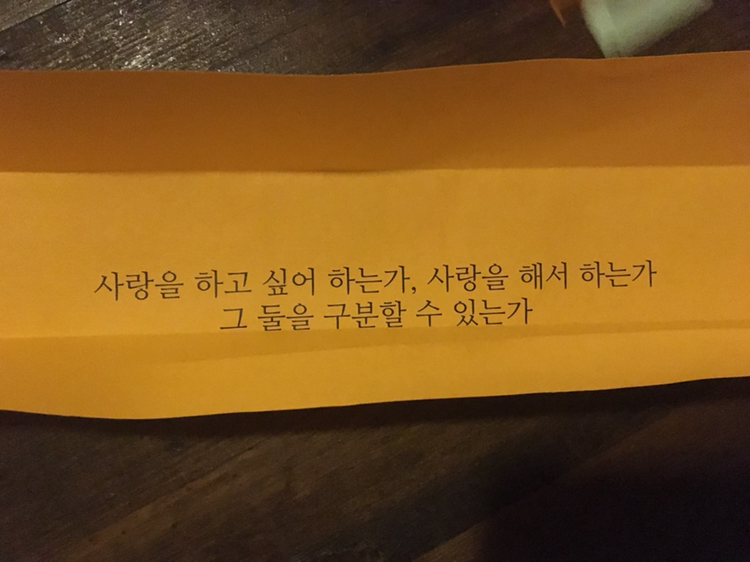 사랑을 하고 싶어 하는가, 사랑을 해서 하는가
그 둘을 구분할 수 있는가